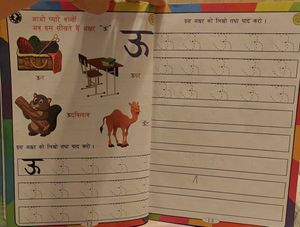 आओ प्यारे बच्चों
अब हम सीखते हैं अक्षर "ऊ"
ऊ
ऊन
ऊपर
ऊदबिलाव
ऊँट
इस अक्षर को लिखो तथा याद करो ।
ऊ
इस अक्षर को लिखो तथा याद करो ।